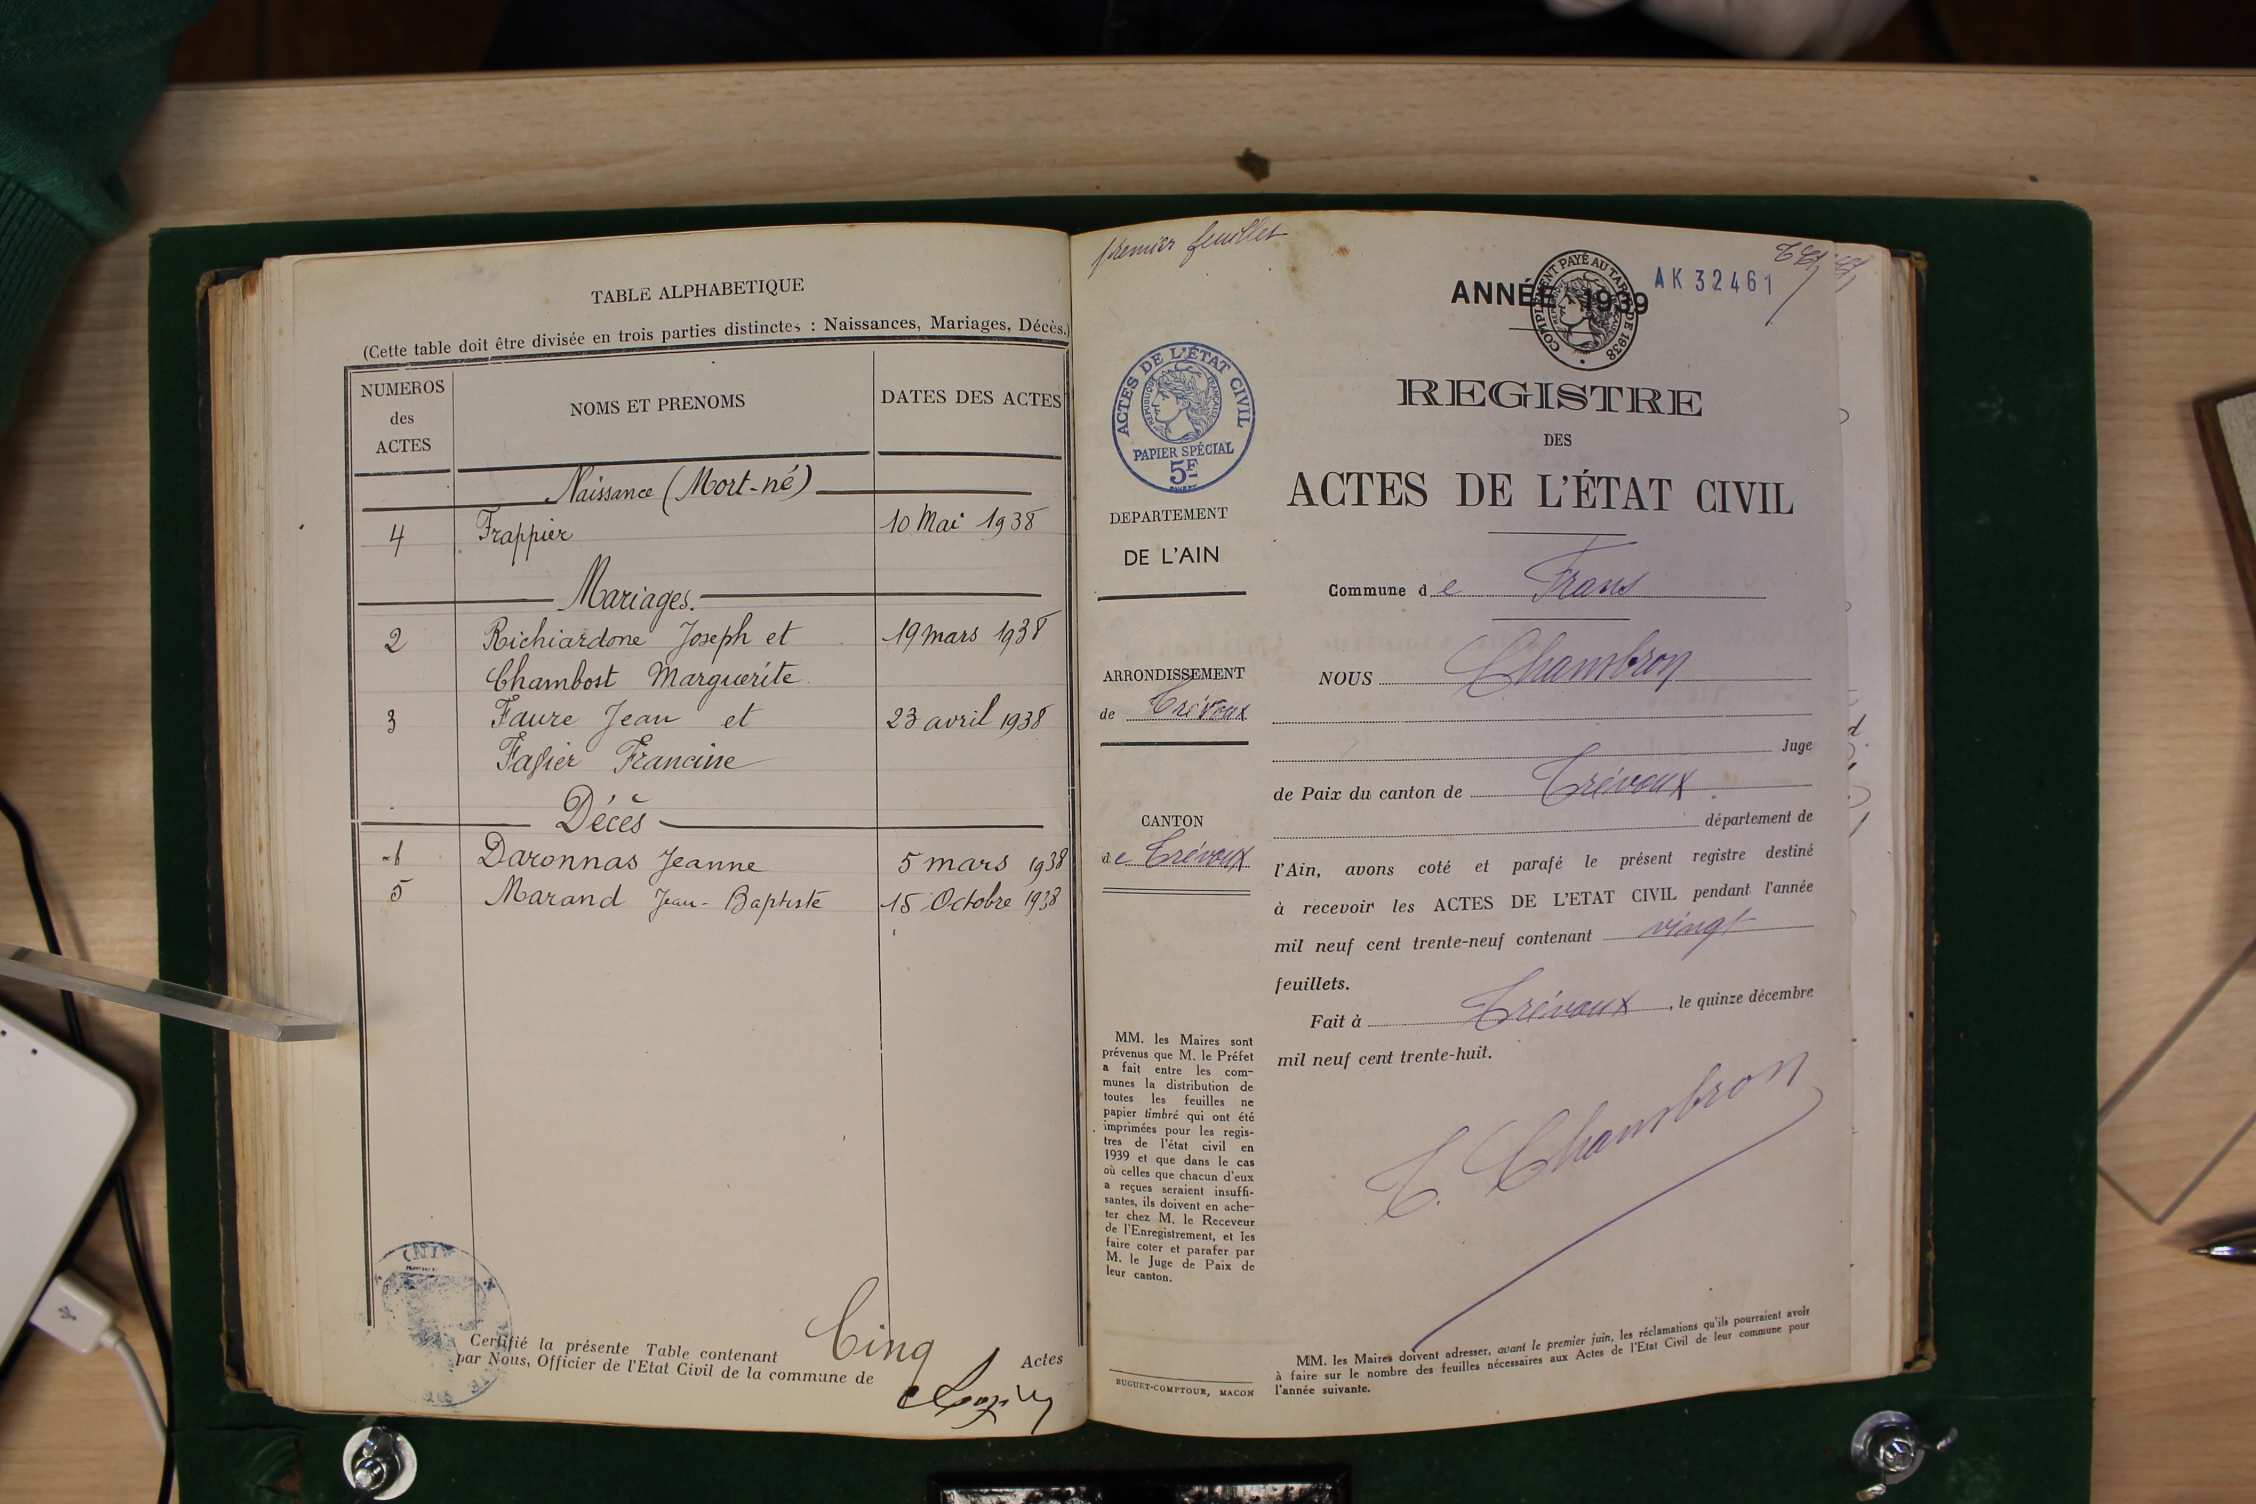 TABLE ALPHABETIQUE
(Cette table doit être divisée en trois parties distinctes : Naissances, Mariages, Décès.)
NUMEROS
des
ACTES
NOMS ET PRENOMS
DATES DES ACTES
Naissance (Mort-né)
4 Frappier 10 Mai 1938
Mariages.
2 Richiardone Joseph et 19 mars 1938
Chambost Marguerite
3 Faure Jean et 23 avril 1938
Francine
Décès
1 Daronnas Jeanne 5 mars 1938
5 Marand Jean-Baptiste 15 Octobre 1938
Certifié la présente Table contenant Cinq Actes
par Nous, Officier de l'Etat Civil de la commune de
premier feuillet
ACTES DE L'ÉTAT CIVIL
RÉPUBLIQUE FRANÇAISE
PAPIER SPÉCIAL
5F
DEPARTEMENT
DE L'AIN
ARRONDISSEMENT
de Trévoux
CANTON
de Trévoux
MM. les Maires sont
prévenus que M. le Préfet
a fait entre les com-
munes la distribution de
toutes les feuilles ne
papier timbré qui ont été
imprimées pour les regis-
tres de l'état civil en
1939 et que dans le cas
où celles que chacun d'eux
a reçues seraient insuffi-
santes, ils doivent en ache-
ter chez M. le Receveur
de l'Enregistrement, et les
faire coter et parafer par
M. le Juge de Paix de
leur canton.
BUGUET-COMPTOUR, MACON
ANNÉE 1939
COMPLÉMENT PAYÉ AU TARIF DE 1938
AK 32461
REGISTRE
DES
ACTES DE L'ÉTAT CIVIL
Commune de Frans
NOUS Chambron
Juge
de Paix du canton de Trévoux
département de
l'Ain, avons coté et parafé le présent registre destiné
à recevoir les ACTES DE L'ETAT CIVIL pendant l'année
mil neuf cent trente-neuf contenant vingt
feuillets.
Fait à Trévoux, le quinze décembre
mil neuf cent trente-huit.
Chambron
MM. les Maires doivent adresser, avant le premier juin, les réclamations qu'ils pourraient avoir
à faire sur le nombre des feuilles nécessaires aux Actes de l'Etat Civil de leur commune pour
l'année suivante.